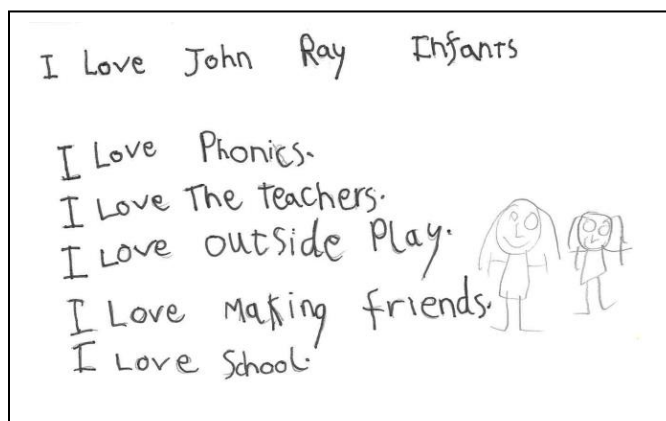 I Love John Ray Infants
I Love Phonics.
I Love The teachers.
I Love outside Play.
I Love making friends.
I Love School.